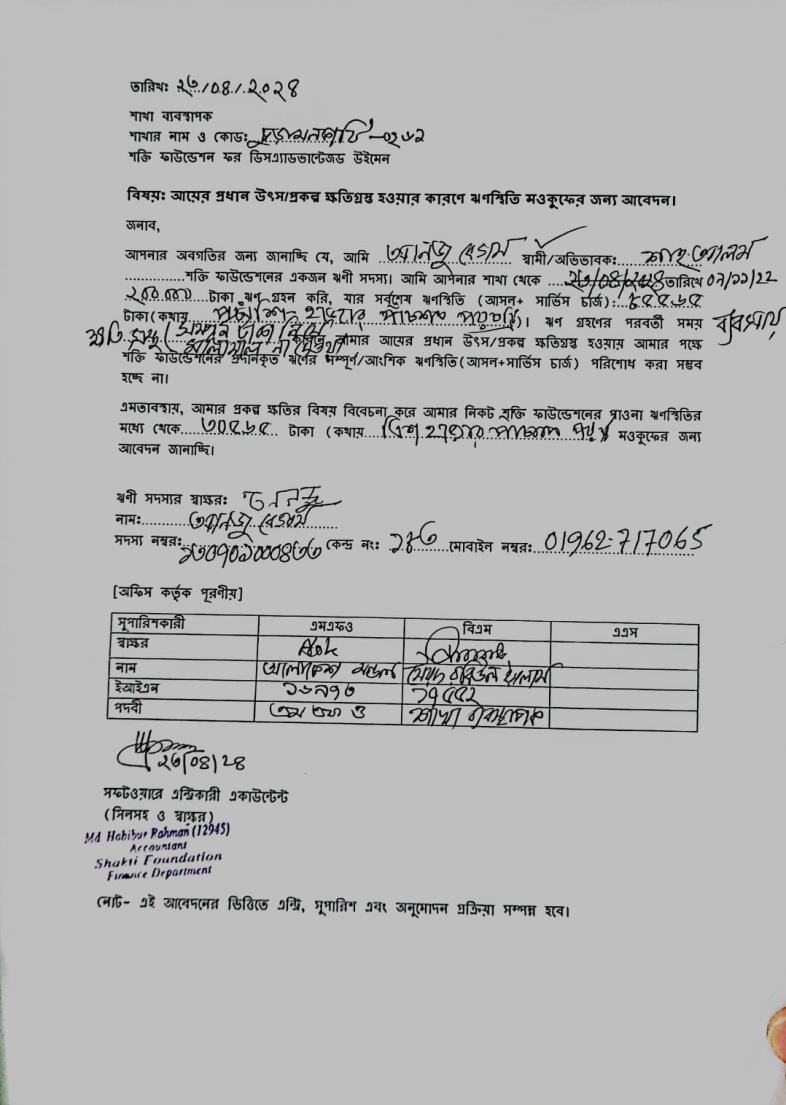 তারিখ: ২৬/০৪/২০২৪
শাখা ব্যবস্থাপক
শাখার নাম ও কোডঃ -০২৬২
শক্তি ফাউন্ডেশন ফর ডিসএ্যাডভান্টেজড উইমেন
বিষয়: আয়ের প্রধান উৎস/প্রকল্প ক্ষতিগ্রস্থ হওয়ার কারণে ঋণস্থিতি মওকুফের জন্য আবেদন।
জনাব,
আপনার অবগতির জন্য জানাচ্ছি যে, আমি আনজু বেগম স্বামী/অভিভাবক: শাহ আলম
শক্তি ফাউন্ডেশনের একজন ঋণী সদস্য। আমি আপনার শাখা থেকে তারিখে ০৭/১১/২২
২০০০০০ টাকা ঋণ গ্রহন করি, যার সর্বশেষ ঋণস্থিতি (আসল+ সার্ভিস চার্জ):
টাকা(কথায় )। ঋণ গ্রহণের পরবর্তী সময় ব্যবসায়
আমার আয়ের প্রধান উৎস/প্রকল্প ক্ষতিগ্রস্থ হওয়ায় আমার পক্ষে
শক্তি ফাউন্ডেশনের প্রদানকৃত ঋণের সম্পূর্ণ/আংশিক ঋণস্থিতি(আসল+সার্ভিস চার্জ) পরিশোধ করা সম্ভব
হচ্ছে না।
এমতাবস্থায়, আমার প্রকল্প ক্ষতির বিষয় বিবেচনা করে আমার নিকট শক্তি ফাউন্ডেশনের পাওনা ঋণস্থিতির
মধ্যে থেকে ৩০৫৬৫ টাকা (কথায় ত্রিশ হাজার পাঁচশত মওকুফের জন্য
আবেদন জানাচ্ছি।
ঋণী সদস্যর স্বাক্ষর: আনজু
নাম: আনজু বেগম
সদস্য নম্বর: কেন্দ্র নং: মোবাইল নম্বর: 01962-717065
[অফিস কর্তৃক পূরণীয়]
সুপারিশকারী এমএফও বিএম এএস
স্বাক্ষর
নাম মন্ডল
ইআইএন ১৬৭১৩ ১৭৫৫২
পদবী এম এফ ও শাখা ব্যবস্থাপক
২৬/০৪/২৪
সফটওয়ারে এন্ট্রিকারী একাউন্টেন্ট
(সিলসহ ও স্বাক্ষর)
Md Habibur Rahman (12945)
Accountant
Shakti Foundation
Finance Department
নোট- এই আবেদনের ভিত্তিতে এন্ট্রি, সুপারিশ এবং অনুমোদন প্রক্রিয়া সম্পন্ন হবে।